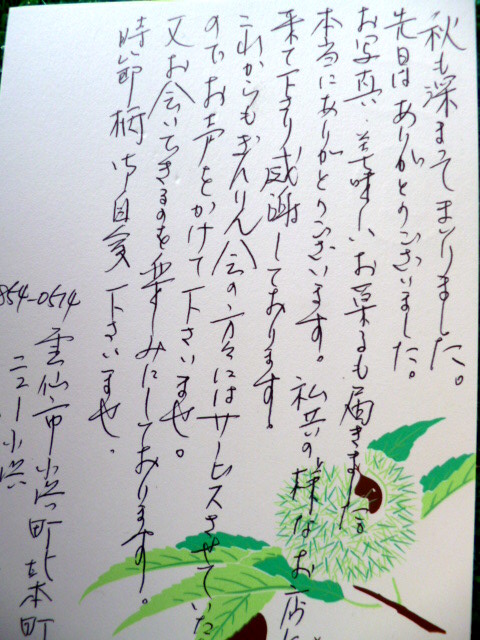 秋も深まってまいりました。
先日はありがとうございました。
お写真、美味しいお菓子も届きました
本当にありがとうございます。私共の様なお店に
来て下さり感謝しております。
これからもきんりん会の方々にはサービスさせていた
のでお声をかけて下さいませ。
又お会いできるのを楽しみにしております。
時節柄御自愛下さいませ.
854-0514
雲仙市小浜町北本町
ニュー小浜